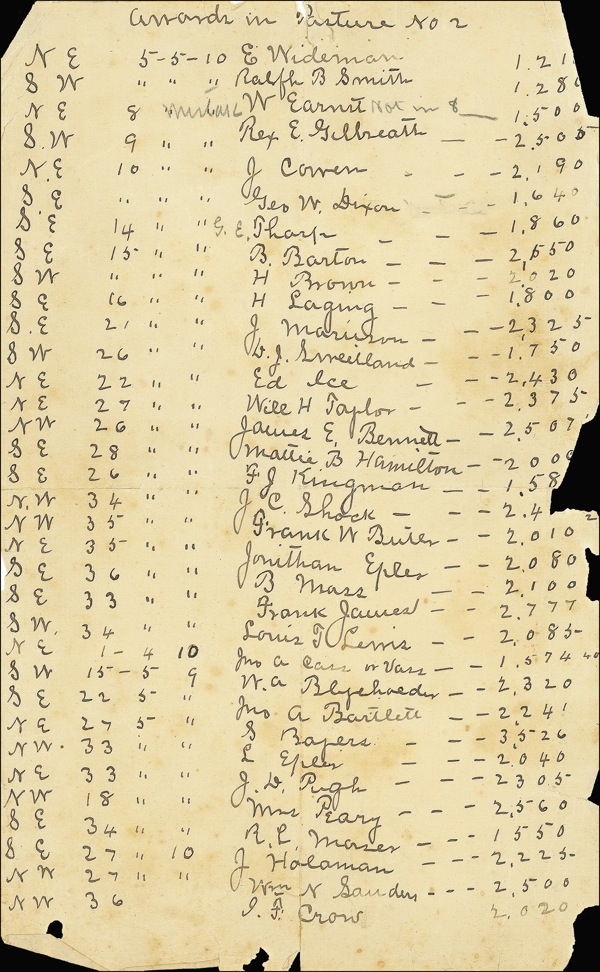 Awards in Pasture No 2
N E 5-5-10 E Wideman 1.21
S W " " " Ralph B Smith 1.280
N E 8 W Earnit Not in 8 1,500
S.W 9 " " Rex E. Gilbreath - - 2.505
N.E 10 " " J Cowen - - 2,190
S. E " " " Geo W. Dixon 1,640
S. E 14 " " G. E. Tharp - - 1,860
S E 15 " " B. Barton - - - 2,550
S W " " " H Brown - - - 2,020
S E 16 " " H Laging - - - 1,800
S. E 21 " " J Marison - - - 2,325
S W 26 " " D. J. Sweilland - - 1,750
N E 22 " " Ed Ice - - 2,430
N E 27 " " Will H Taylor - - - 2,375
N W 26 " " James E. Bennett - - 2,507
S E 28 " " Mattie B Hamilton - - 200
S E 26 " " F J Kingman - - 1.58
N.W 34 " " J C. Shock - - 2.4
N W 35 " " Frank W Butler - - 2,010
N E 35 " " Jonithan Epler - - 2,080
S E 36 " " B Mass - - 2,100
S E 33 " " Frank James - - 2,777
S W. 34 " " Louis T Lewis - - 2,085
N E 1-4 10 Jno A Cass or Vass - - 1,574 40
S W 15-5 9 W. A - - 2,320
S E 22 5 " Jno A Bartlett - - 2,241
N E 27 5 " S Bayers - - - 3,526
N W. 33 " " L Epler - - - 2,040
N E 33 " " J. D. Pugh - - - 2305
N W 18 " " Mrs Peary - - - 2,560
S E 34 " " R. L. Moser - - - 1550
S E 27 " 10 J Holaman - - - 2,225
N W 27 " " Wm N Sanders - - - 2,500
N W 36 I. F. Crow 2,020